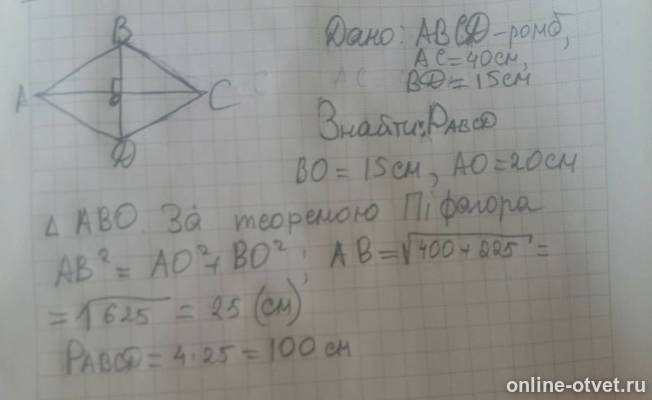 B
A
O
C
D
Дано: ABCD-ромб,
AC=40см,
BD=15см
Знайти: PABCD
BO=15см, AO=20см
Δ ABO. За теоремою Піфагора
AB²=AO²+BO²; AB=√400+225=
=√625=25(см)
PABCD=4·25=100см
online-otvet.ru